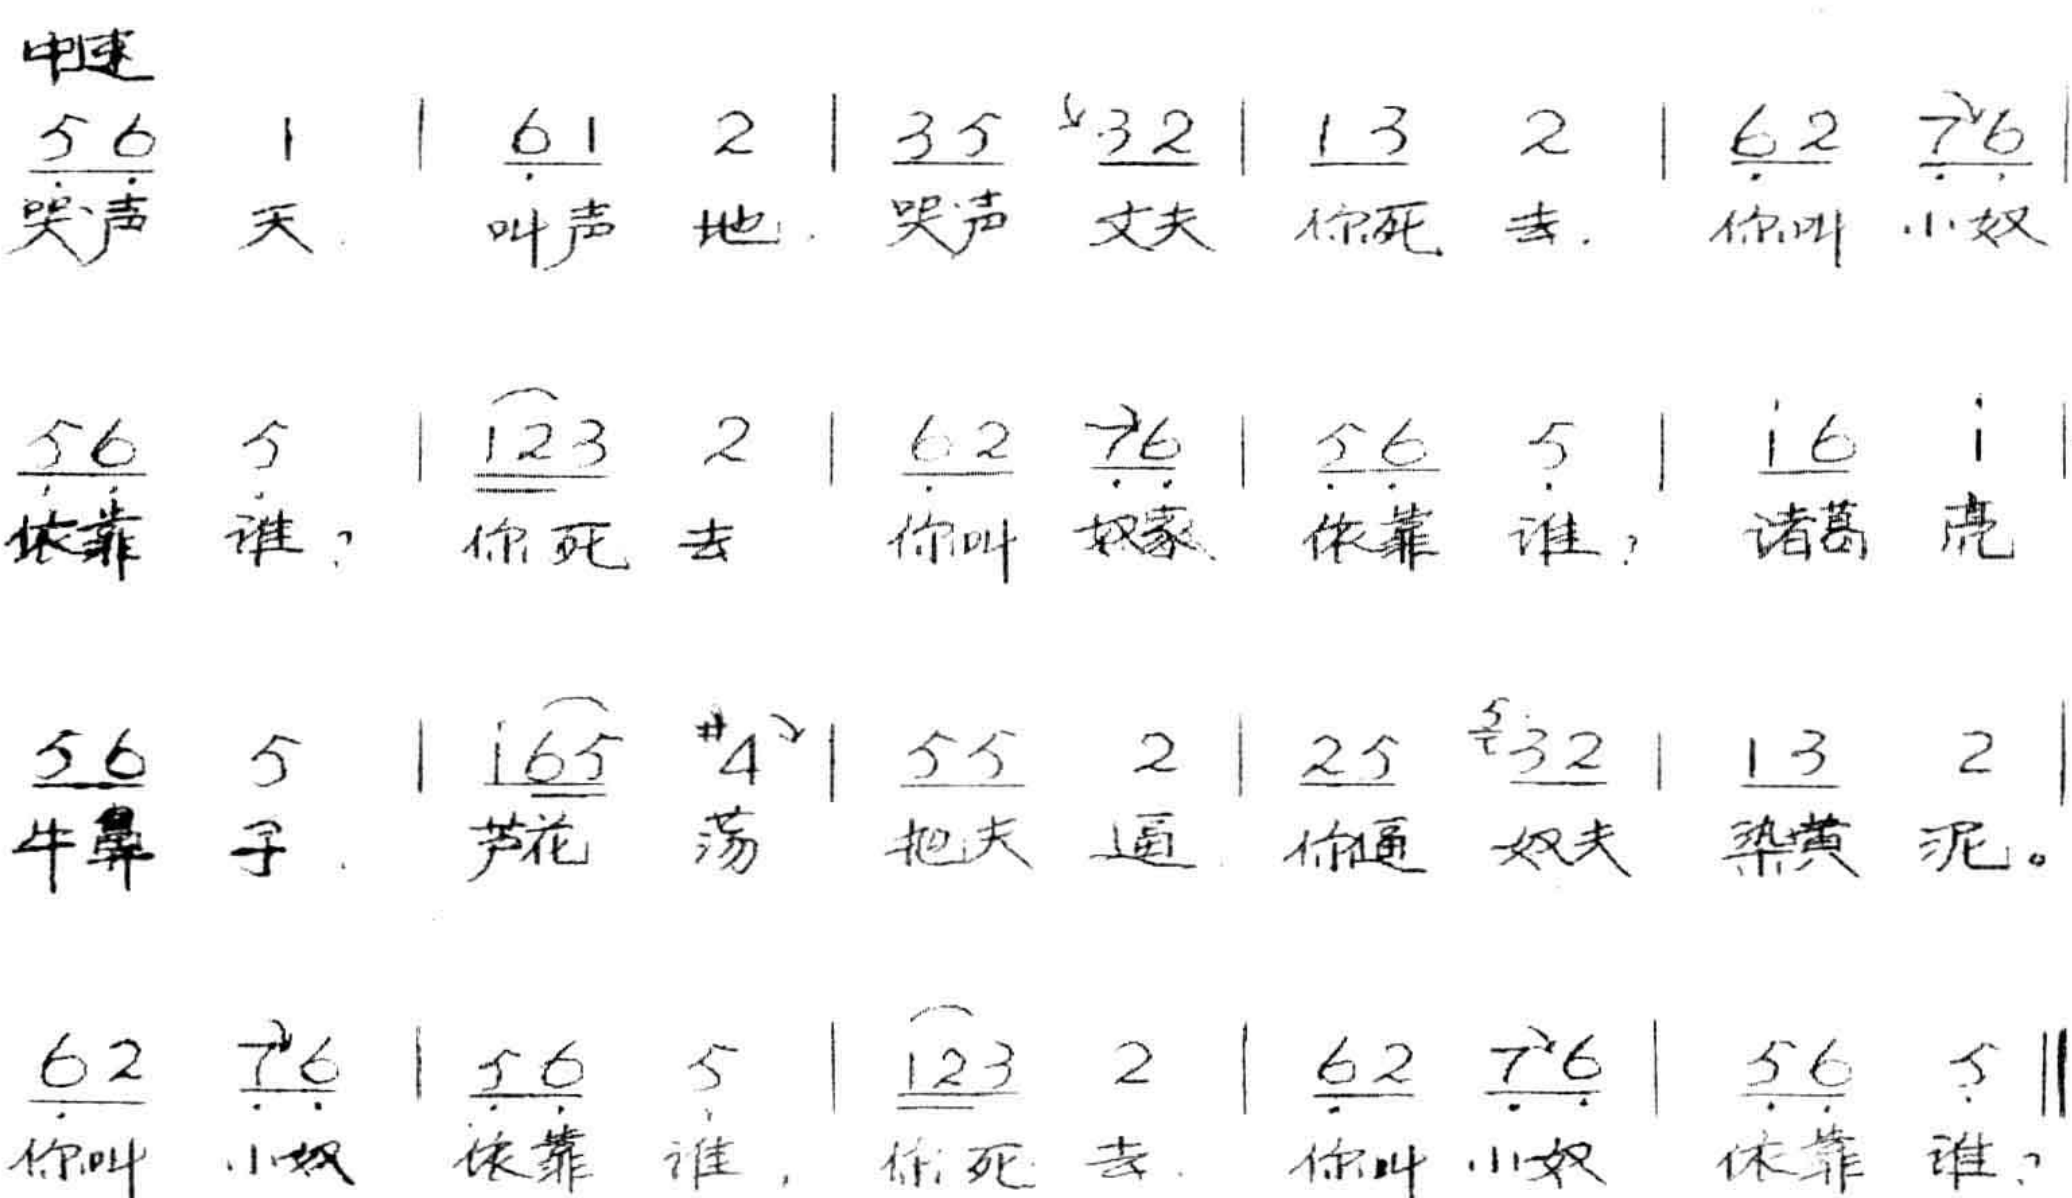 中速
5 6 1 | 6 1 2 | 3 5 3 2 | 1 3 2 | 6 2 7 6 |
哭声 天. 叫声 地. 哭声 丈夫 你死 去. 你叫 小奴
5 6 5 | 1 2 3 2 | 6 2 7 6 | 5 6 5 | i 6 i |
依靠 谁? 你死 去 你叫 奴家 依靠 谁? 诸葛 亮
5 6 5 | i 6 5 #4 | 5 5 2 | 2 5 5 3 2 | 1 3 2 |
牛鼻 子. 芦花 荡 把夫 逼. 你逼 奴夫 染黄 泥。
6 2 7 6 | 5 6 5 | 1 2 3 2 | 6 2 7 6 | 5 6 5 ‖
你叫 小奴 依靠 谁, 你死 去. 你叫 小奴 依靠 谁?